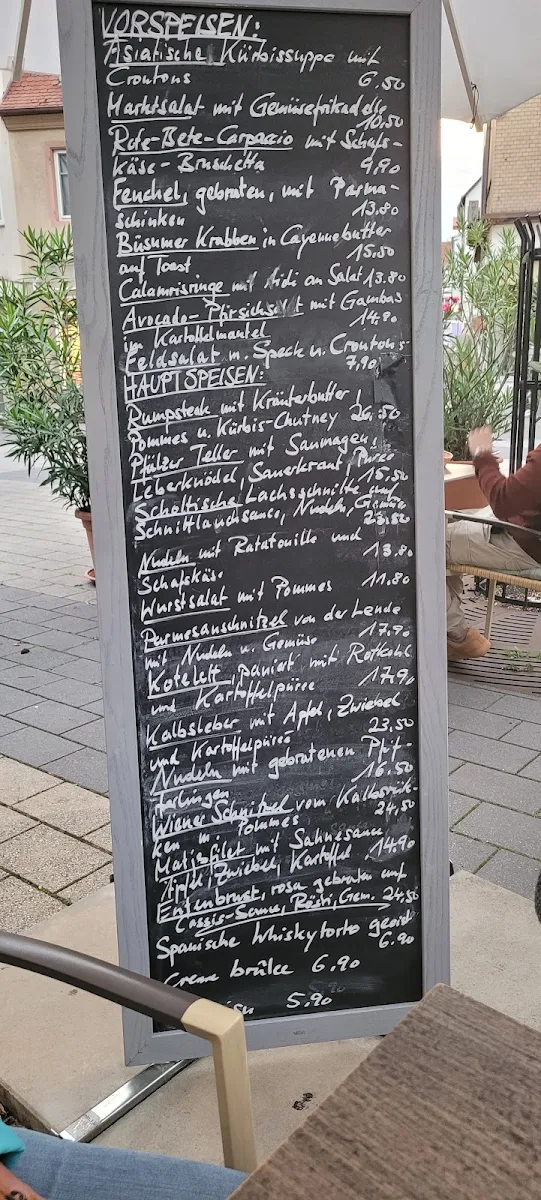 VORSPEISEN:
Asiatische Kürbissuppe mit
Croutons 6,50
Marktsalat mit Gemüsefrikadelle
10,50
Rote-Bete-Carpaccio mit Schafs-
käse-Bruschetta 9,90
Fenchel, gebraten, mit Parma-
schinken 13.80
Büsumer Krabben in Cayennebutter
auf Toast 15,50
Calamrisringe mit Aidi an Salat 13.80
Avocado-Pfirsichsalat mit Gambas
im Kartoffelmantel 14,80
Feldsalat m. Speck u. Croutons
7,90
HAUPTSPEISEN:
Rumpsteak mit Kräuterbutter,
Pommes u. Kürbis-Chutney 26,50
Pfälzer Teller mit Saumagen,
Leberknödel, Sauerkraut, Püree
15,50
Schottische Lachsschnitte auf
Schnittlauchsauce, Nudeln, Gemüse
23,50
Nudeln mit Ratatouille und
Schafskäse 13,80
Wurstsalat mit Pommes 11.80
Parmesanschnitzel von der Lende
mit Nudeln u. Gemüse 17,90
Kotelett, paniert mit Rotkohl
und Kartoffelpüree 17,90
Kalbsleber mit Apfel, Zwiebel
und Kartoffelpüree 23,50
Nudeln mit gebratenen Pfif-
ferlingen 16.50
Wiener Schnitzel vom Kalbsrük-
ken m. Pommes 24,50
Matjsfilet mit Sahnesauce
Apfel, Zwiebel, Kartoffel 14.90
Entenbrust, rosa gebraten auf
Cassis-Sauce, Rösti, Gem. 24,50
Spanische Whiskytorte geeist
6.90
Creme brûlee 6,90
5.90